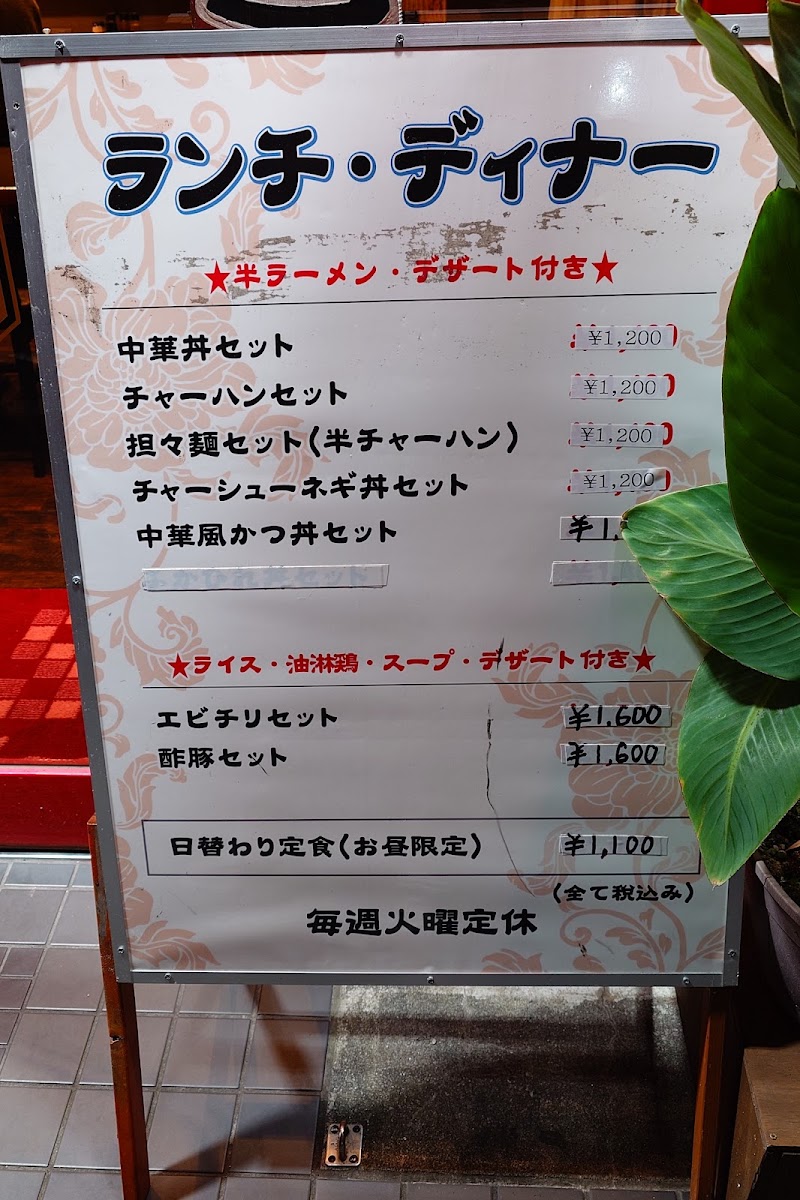 ランチ・ディナー
★半ラーメン・デザート付き★
中華丼セット ¥1,200
チャーハンセット ¥1,200
担々麺セット(半チャーハン) ¥1,200
チャーシューネギ丼セット ¥1,200
中華風かつ丼セット ¥1,
ふかひれ丼セット
★ライス・油淋鶏・スープ・デザート付き★
エビチリセット ¥1,600
酢豚セット ¥1,600
日替わり定食(お昼限定) ¥1,100
(全て税込み)
毎週火曜定休